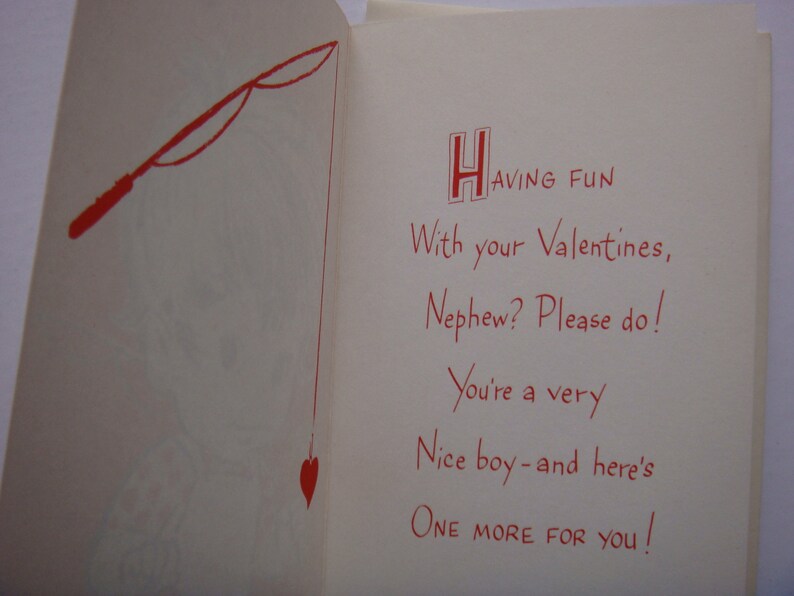 HAVING FUN
With your Valentines,
Nephew? Please do!
You're a very
Nice boy-and here's
ONE MORE FOR YOU!